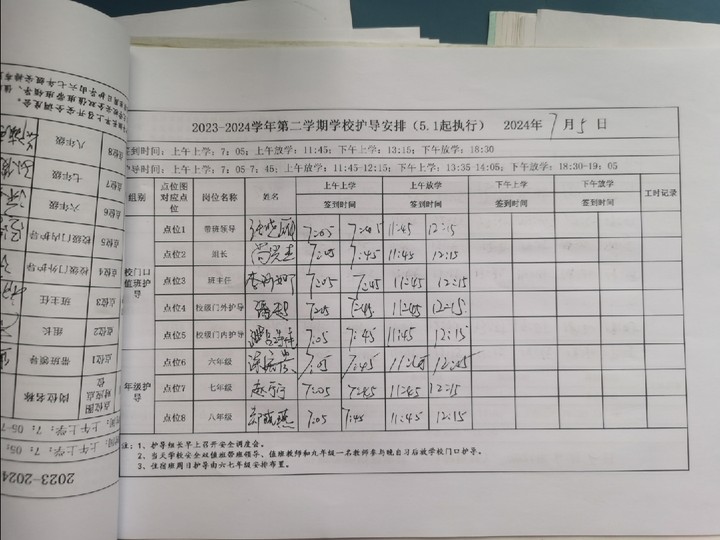 2023-2024学年第二学期学校护导安排（5.1起执行） 2024年 7 月 5 日
签到时间：上午上学：7：05；上午放学：11:45；下午上学：13:15；下午放学：18:30
护导时间：上午上学：7：05-7：45；上午放学：11:45-12:15；下午上学：13:35-14:05；下午放学：18:30-19：05
组别 点位图对应点位 岗位名称 姓名 上午上学 上午放学 下午上学 下午放学 工时记录
签到时间 签到时间 签到时间 签到时间
校门口值班护导
点位1 带班领导 7:05 7:45 11:45 12:15
点位2 组长 7:05 7:45 11:45 12:15
点位3 班主任 7:05 7:45 11:45 12:15
点位4 校级门外护导 7:05 7:45 11:45 12:15
点位5 校级门内护导 7:05 7:45 11:45 12:15
年级护导
点位6 六年级 7:05 7:45 11:45
点位7 七年级 7:05 7:45 11:45 12:15
点位8 八年级 7:05 7:45 11:45 12:15
注：1、护导组长早上召开安全调度会。
2、当天学校安全双值班带班领导、值班教师和九年级一名教师参与晚自习后放学校门口护导。
3、住宿班周日护导由六七年级安排布置。
2023-2024
点位图对应点位 岗位名称
点位1 带班领导
点位2 组长
点位3 班主任
点位4 校级门外护导
点位5 校级门内护导
点位6 六年级
点位7 七年级
点位8 八年级